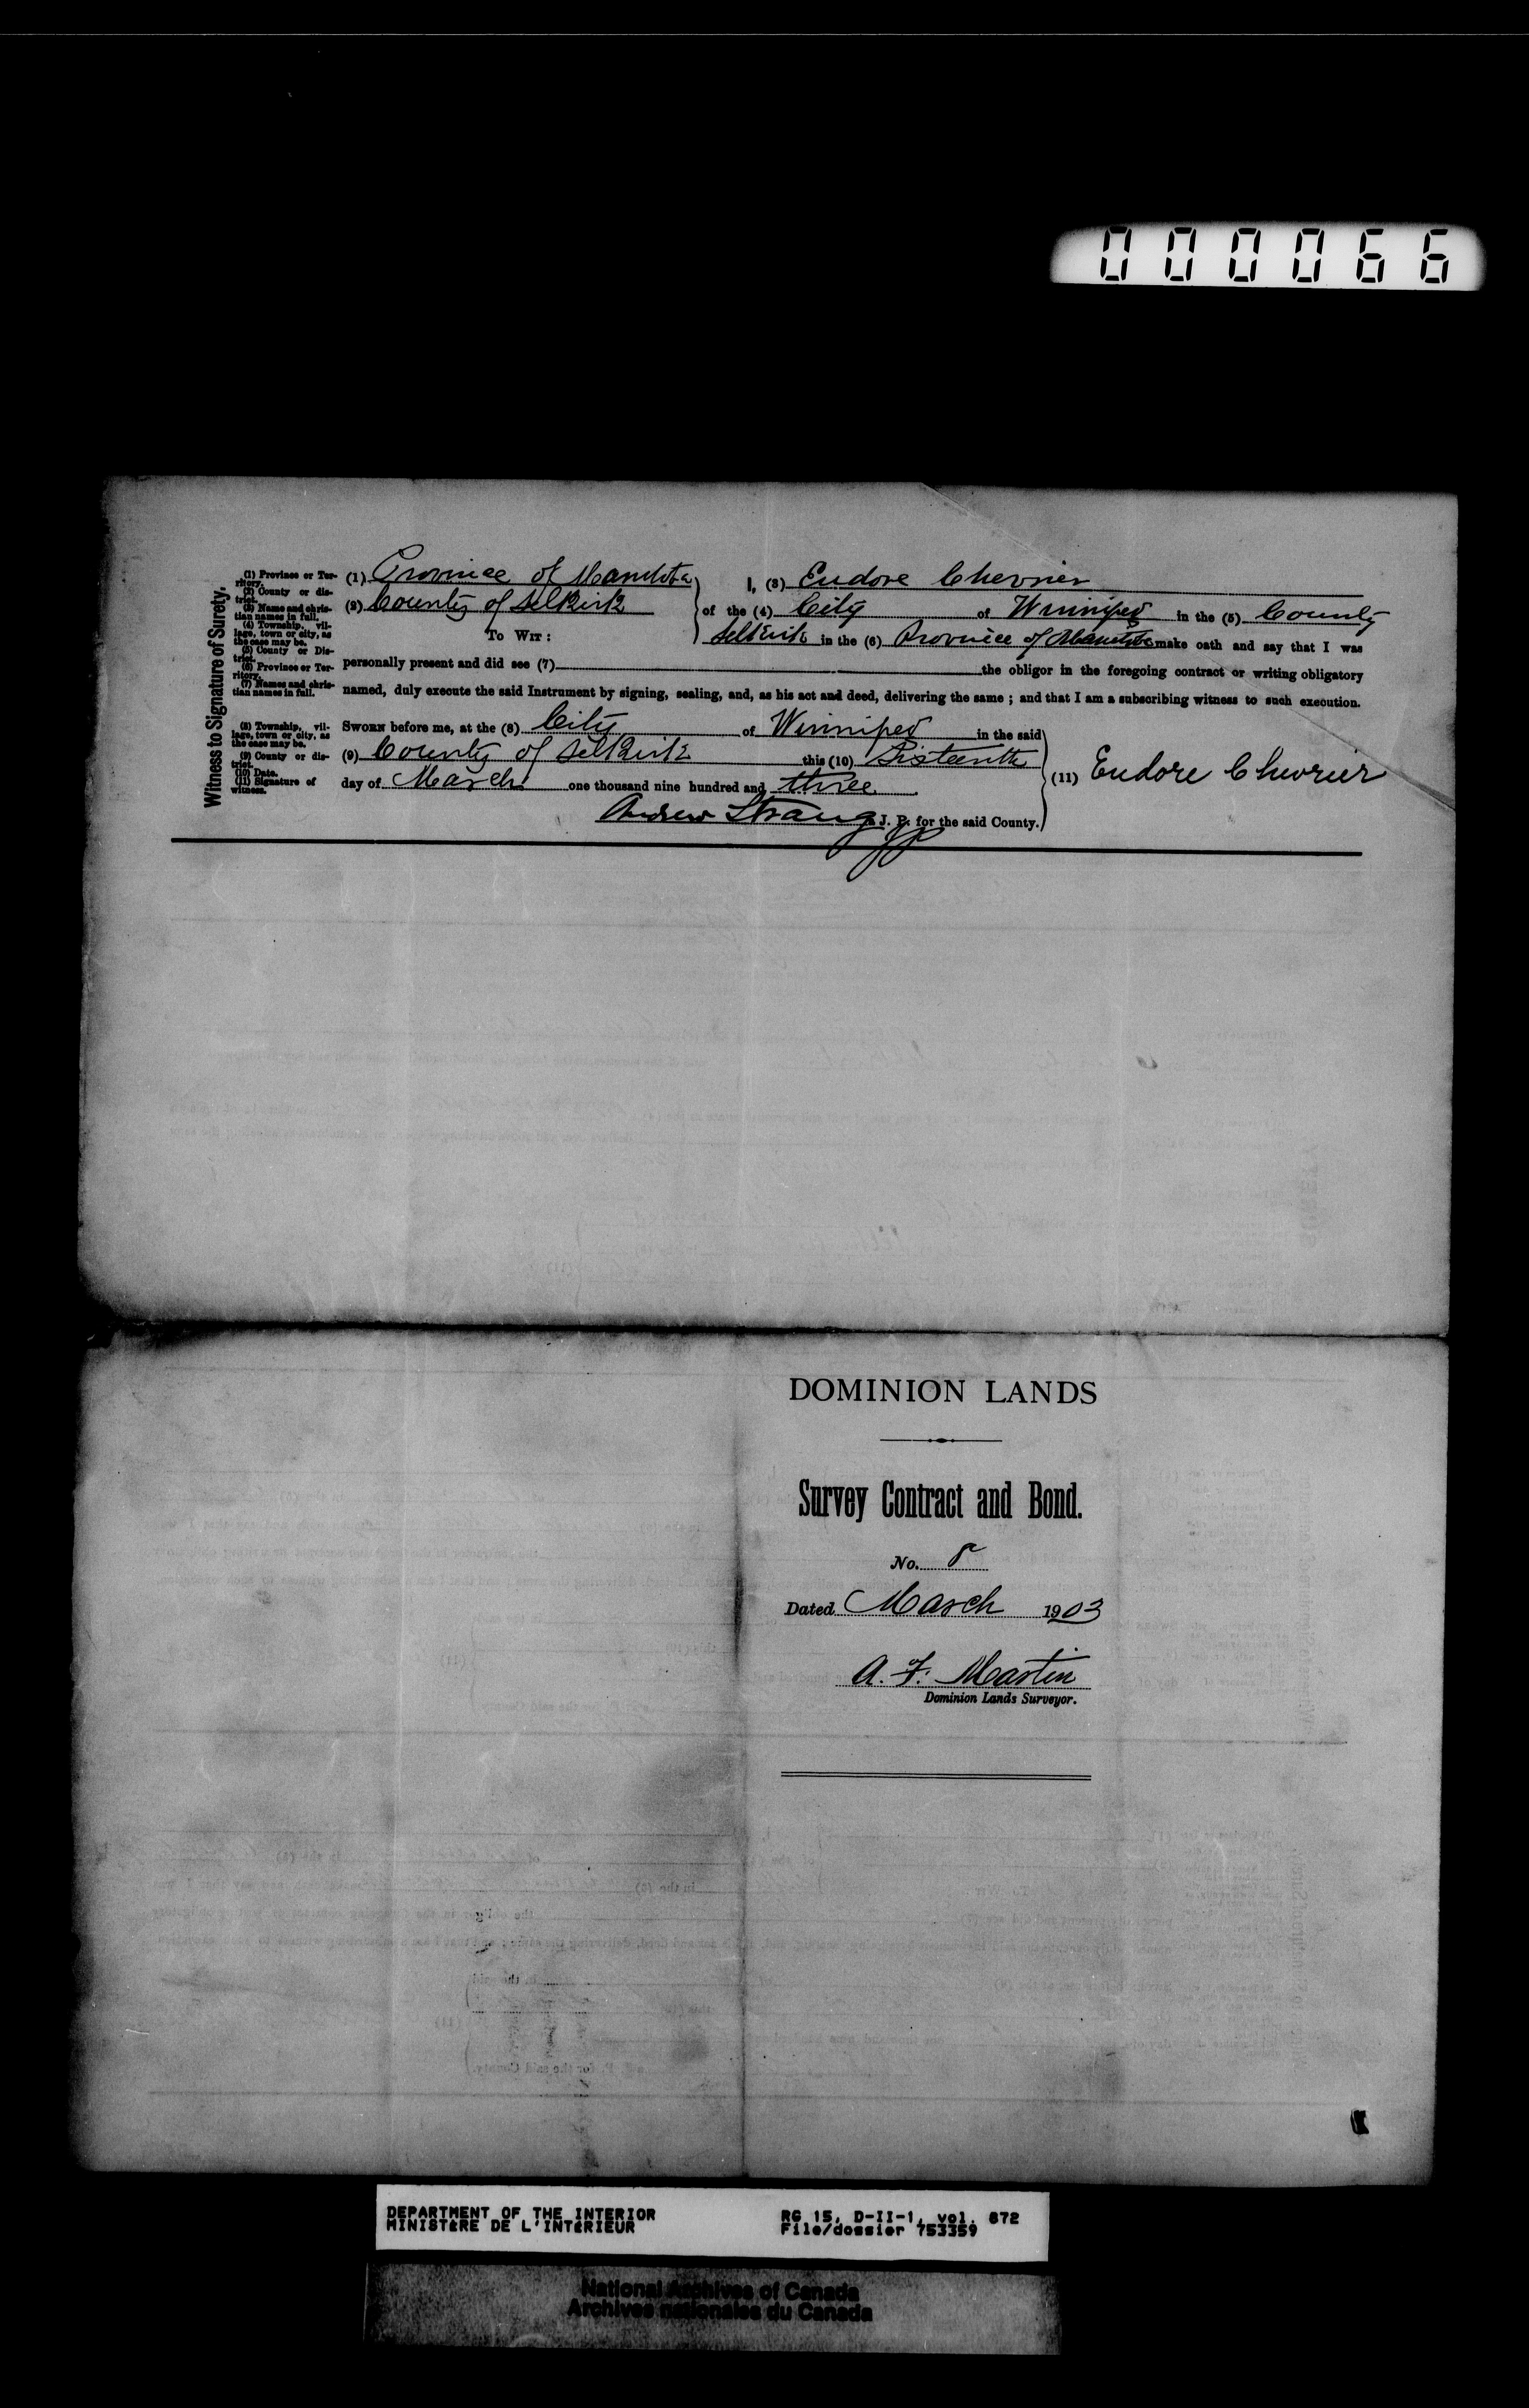 000066
Witness to Signature of Surety.
(1) Province or Territory.
(2) County or district.
(3) Name and christian names in full.
(4) Township, village, town or city, as the case may be.
(5) County or District.
(6) Province or Territory.
(7) Names and christian names in full.
(1) Province of Manitoba
(2) County of Selkirk
To Wit:
I, (3) Eudore Chevrier
of the (4) City of Winnipeg in the (5) County
Selkirk in the (6) Province of Manitoba make oath and say that I was
personally present and did see (7) the obligor in the foregoing contract or writing obligatory
named, duly execute the said Instrument by signing, sealing, and, as his act and deed, delivering the same ; and that I am a subscribing witness to such execution.
(8) Township, village, town or city, as the case may be.
(9) County or district.
(10) Date.
(11) Signature of witness.
Sworn before me, at the (8) City of Winnipeg in the said
(9) County of Selkirk this (10) Sixteenth
day of March one thousand nine hundred and three
(11) Eudore Chevrier
Andrew Strang J. P. for the said County.
JP
DOMINION LANDS
Survey Contract and Bond.
No. 8
Dated March 1903
A. F. Martin
Dominion Lands Surveyor.
DEPARTMENT OF THE INTERIOR
MINISTÈRE DE L'INTÉRIEUR
RG 15, D-II-1, vol. 872
File/dossier 753359
National Archives of Canada
Archives nationales du Canada